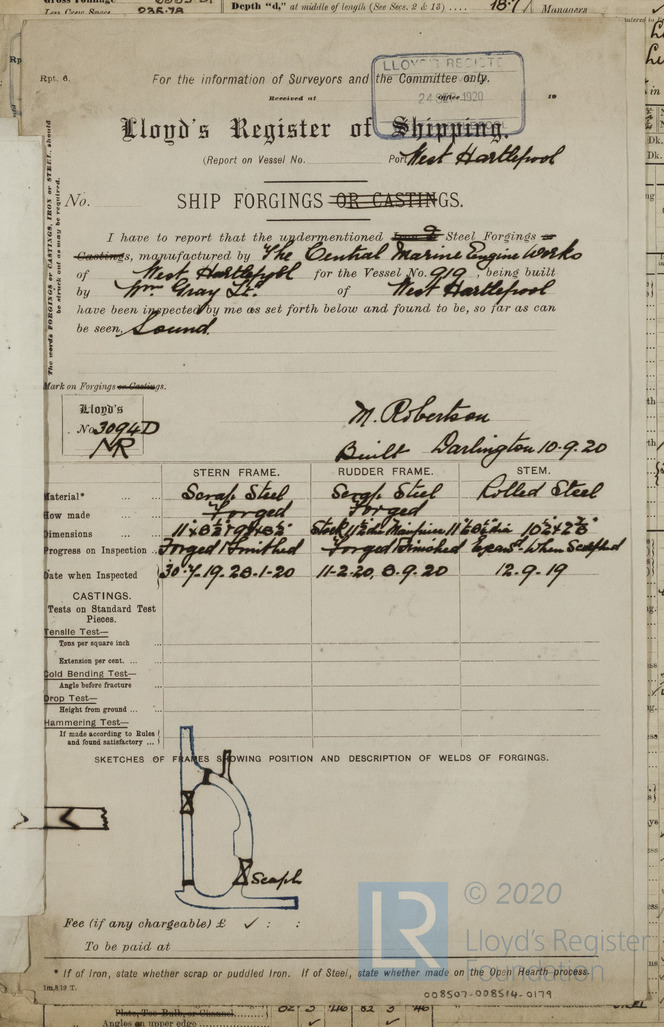 Less Crew Space 235.78
Depth "d," at middle of length (See Secs. 2 & 13) .... 18.7 Managers
Rpt. 6.
For the information of Surveyors and the Committee only.
LLOYD'S REGISTE
24 1920
Received at Office 19
Lloyd's Register of Shipping.
(Report on Vessel No. Port West Hartlepool
No. SHIP FORGINGS OR CASTINGS.
The words FORGINGS or CASTINGS, IRON or STEEL, should be struck out as may be required.
I have to report that the undermentioned Iron Steel Forgings or
Castings, manufactured by The Central Marine Engine Works
of West Hartlepool for the Vessel No. 919, being built
by Wm Gray Ltd. of West Hartlepool
have been inspected by me as set forth below and found to be, so far as can
be seen, Sound.
Mark on Forgings or Castings.
Lloyd's
No 3094D
NR
M. Robertson
Built Darlington 10-9.20
STERN FRAME. RUDDER FRAME. STEM.
Material* ... ... Scrap Steel Scrap Steel Rolled Steel
How made ... Forged Forged
Dimensions ...
Progress on Inspection .. Forged & Smithed Forged Finished Expansd. When Scarphed
Date when Inspected 30.7.19. 28-1-20 11-2-20, 8.9.20 12.9.19
CASTINGS.
Tests on Standard Test
Pieces.
Tensile Test—
Tons per square inch ...
Extension per cent. ... ...
Cold Bending Test—
Angle before fracture ...
Drop Test—
Height from ground ... ...
Hammering Test—
If made according to Rules
and found satisfactory ...
SKETCHES OF FRAMES SHOWING POSITION AND DESCRIPTION OF WELDS OF FORGINGS.
Scarph
Fee (if any chargeable) £ ✓ : :
To be paid at
© 2020
LR
Lloyd's Register
Foundation
* If of Iron, state whether scrap or puddled Iron. If of Steel, state whether made on the Open Hearth process.
1m,8,19 T.
008507-008514-0179
Plate, Tee Bulb, or Channel
Angles on upper edge